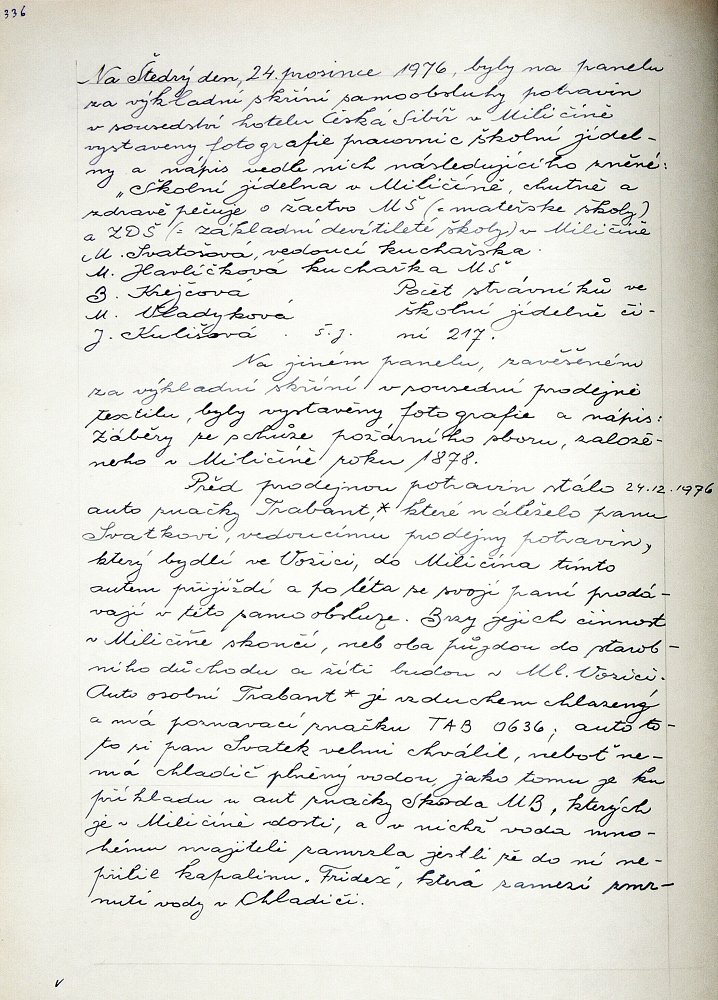 336
Na Štedrý den, 24. prosince 1976, byly na panelu
za výkladní skříní samoobsluhy potravin
v sousedství hotelu Česká Sibiř v Miličíně
vystaveny fotografie pracovnic školní jídel-
ny a nápis vedle nich následujícího znění:
„Školní jídelna v Miličíně, chutně a
zdravě pečuje o žactvo MŠ (= mateřske školy)
a ZDŠ (= základní devítileté školy) v Miličíně
M. Svatošová, vedoucí kuchařska.
M. Havlíčková kuchařka MŠ
B. Krejčová Počet strávníků ve
M. Vladyková školní jídelně či-
J. Kulišová . š.j. ní 217.
Na jiném panelu, zavěšeném
za výkladní skříní v sousední prodejně
textilu, byly vystavěny fotografie a nápis:
Záběry ze schůze požárního sboru, založe-
neho v Miličíně roku 1878.
Před prodejnou potravin stálo 24.12.1976
auto značky Trabant,* které náleželo panu
Svatkovi, vedoucímu prodejny potravin,
který bydlí ve Vožici, do Miličína tímto
autem přijíždí a po léta se svojí paní prodá-
vají v této samoobsluze. Brzy jejich činnost
v Miličíně skončí, neb oba půjdou do starob-
ního důchodu a žíti budou v Ml. Vožici.
Auto osobní Trabant * je vzduchem chlazený
a má poznavací značku TAB 0636; auto to-
to si pan Svatek velmi chválil, neboť ne-
má chladič plněný vodou, jako tomu je ku
příkladu u aut značky Škoda MB, kterých
je v Miličíně dosti, a v nichž voda mno-
hému majiteli zamrzla jestli že do ní ne-
přilil kapalinu „Fridex", která zamezí zmrz-
nutí vody v Chladiči.
v